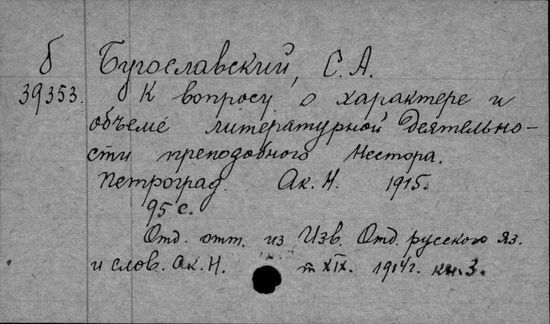 б Бугославский, С. А.
39353. К вопросу о характере и
объеме литературной деятельно-
сти преподобного Нестора.
Петроград. Ак. Н. 1915.
95 с.
Отд. отт. из Изв. Отд. русского яз.
и слов. Ак. Н. т XIX. 1914г. кн. 3.